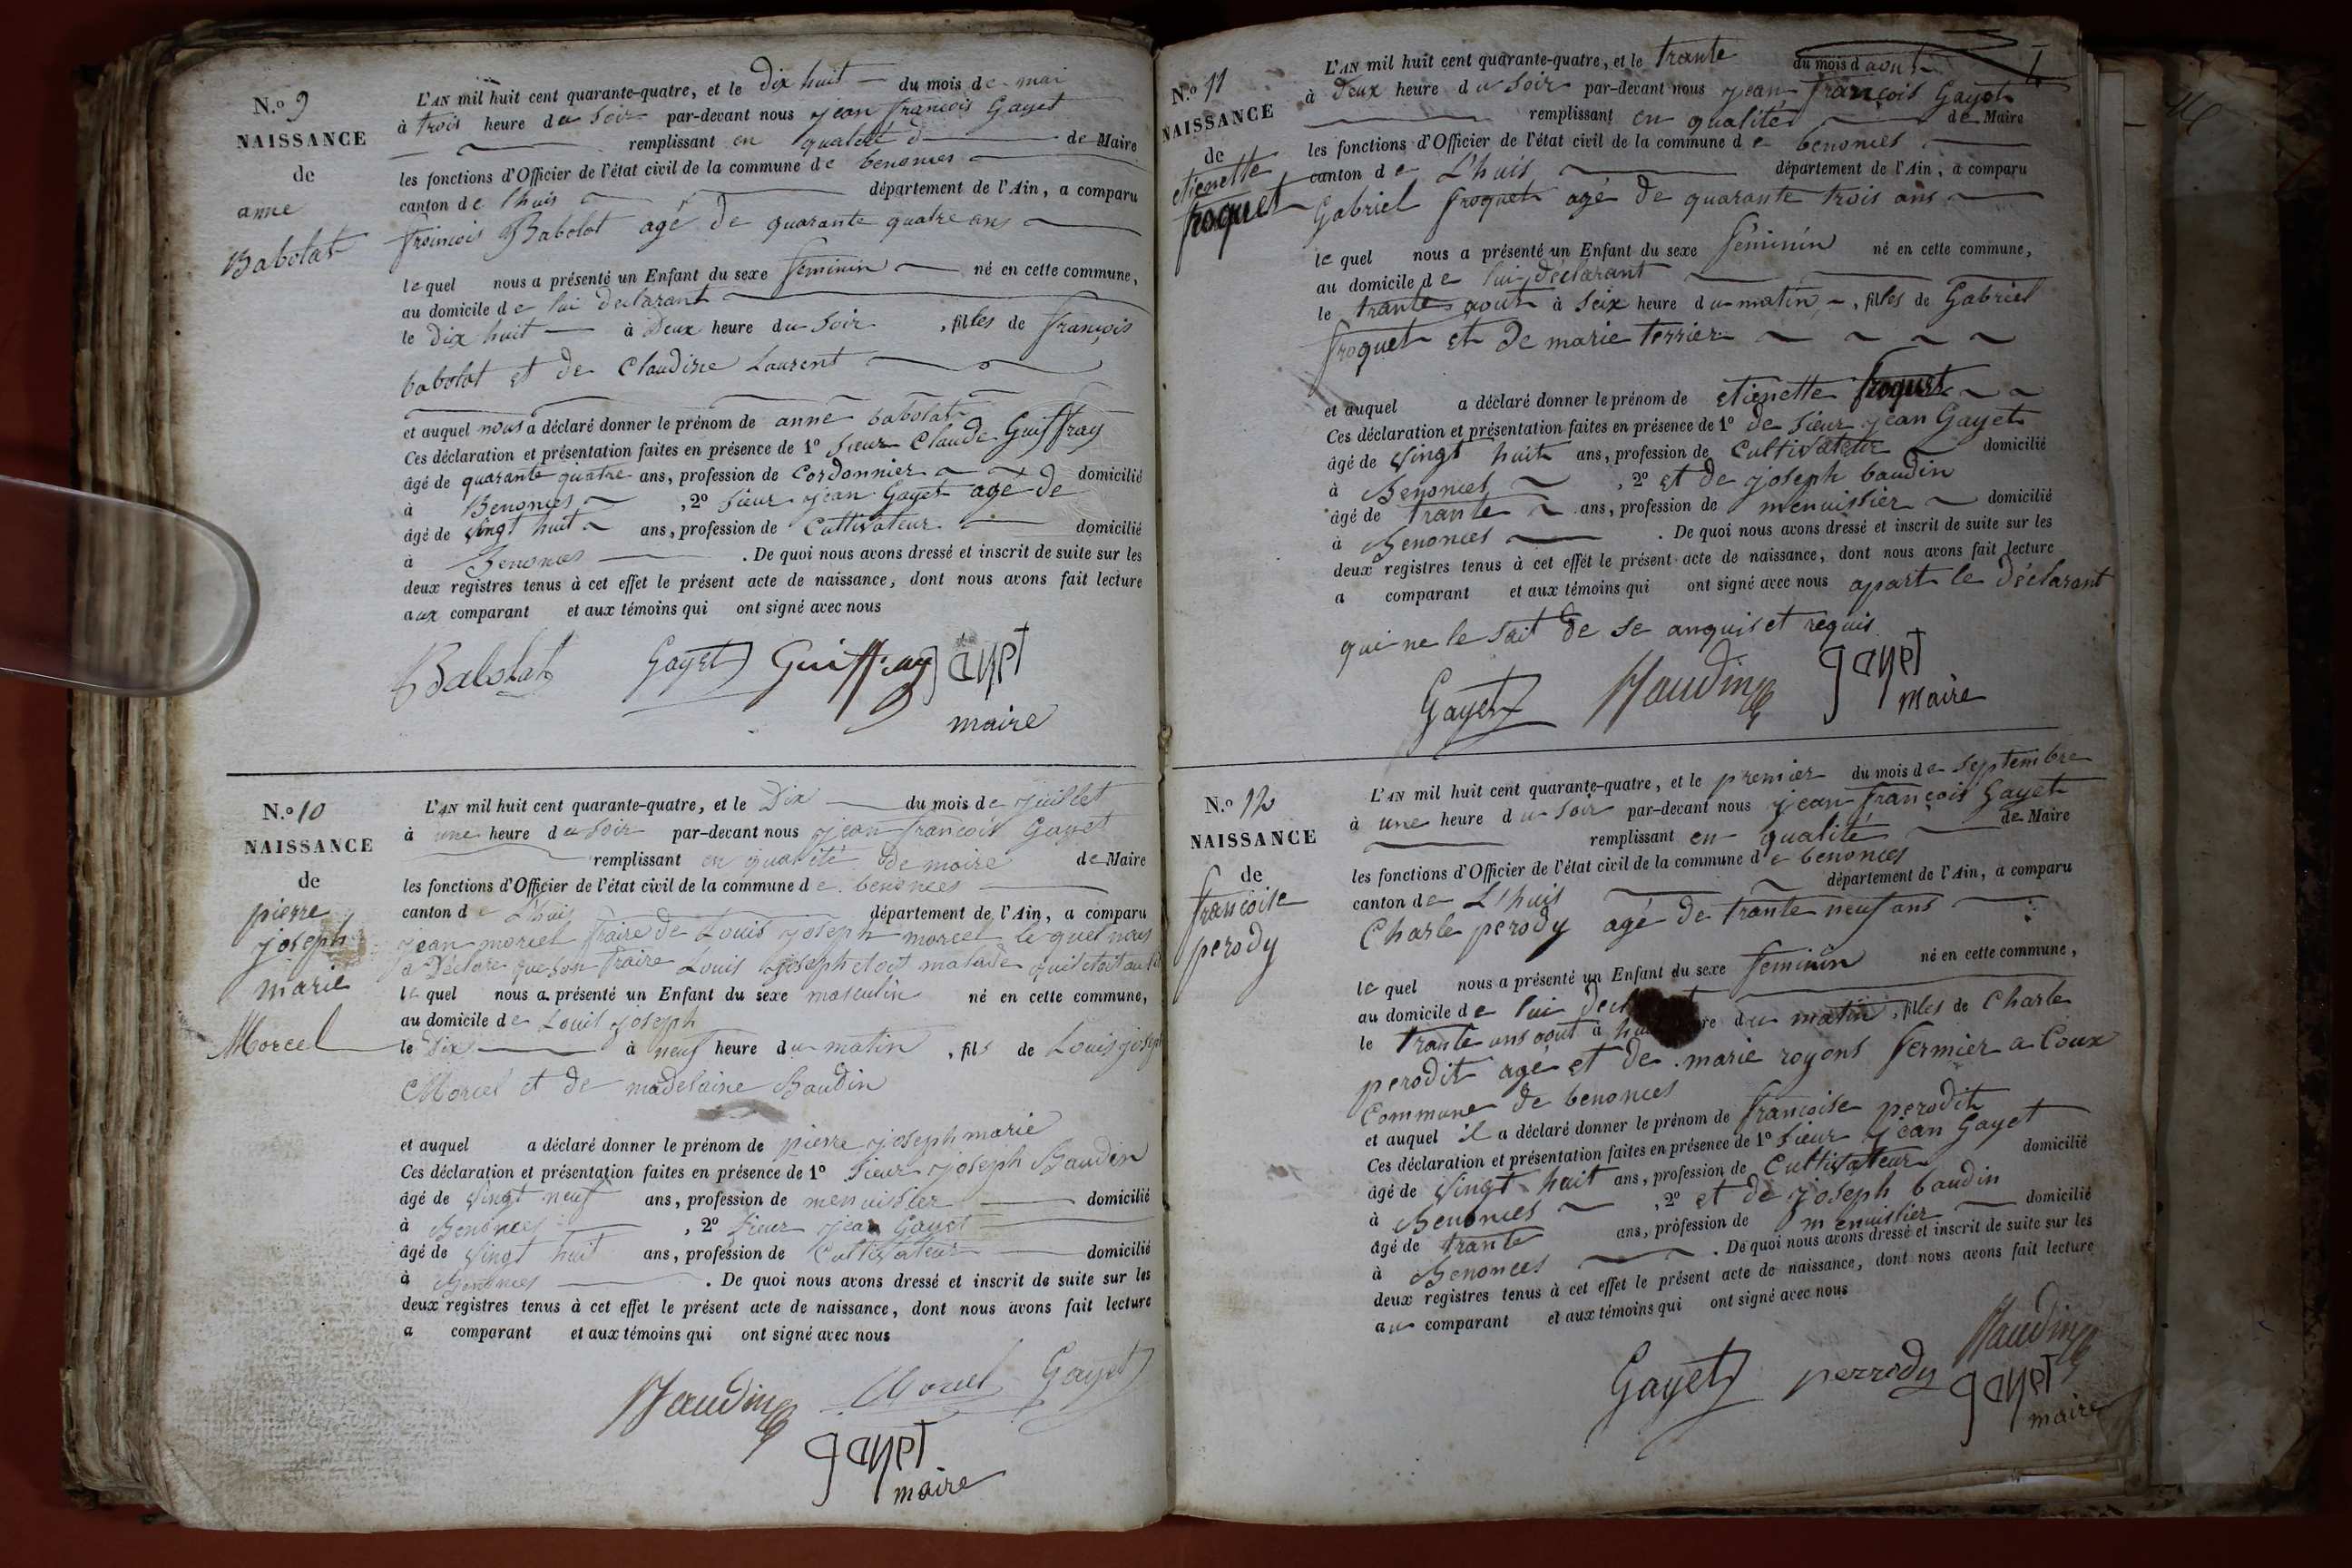 N.o 9
NAISSANCE
de
anne
Babolat
L'AN mil huit cent quarante-quatre, et le dix huit du mois de mai
à trois heure du soir par-devant nous jean françois Gayet
remplissant en qualité d de Maire
les fonctions d'Officier de l'état civil de la commune de benonces
canton de l'huis département de l'Ain, a comparu
françois Babolat agé de quarante quatre ans
le quel nous a présenté un Enfant du sexe feminin né en cette commune,
au domicile de lui declarant
le dix huit à deux heure du soir, filles de françois
babolat et de Claudine Laurent
et auquel nous a déclaré donner le prénom de anne babolat
Ces déclaration et présentation faites en présence de 1o sieur Claude Guiffray
âgé de quarante quatre ans, profession de Cordonnier domicilié
à Benonces, 2o sieur jean Gayet agé de
âgé de vingt huit ans, profession de Cultivateur domicilié
à Benonces. De quoi nous avons dressé et inscrit de suite sur les
deux registres tenus à cet effet le présent acte de naissance, dont nous avons fait lecture
aux comparant et aux témoins qui ont signé avec nous
Babolat Gayet Guiffray gayet
maire
N.o 10
NAISSANCE
de
pierre
joseph
marie
Morcel
L'AN mil huit cent quarante-quatre, et le Dix du mois de juillet
à une heure du soir par-devant nous jean françois Gayet
remplissant en qualité de moire de Maire
les fonctions d'Officier de l'état civil de la commune de benonces
canton de L'huis département de l'Ain, a comparu
jean morcel fraire de Louis joseph morcel le quel nous
a Déclare que son fraire Louis joseph etoit malade quil etoit au
le quel nous a présenté un Enfant du sexe masculin né en cette commune,
au domicile de Louis joseph
le Dix à neuf heure du matin, fils de Louis joseph
Morcel et de madelaine Baudin
et auquel a déclaré donner le prénom de pierre joseph marie
Ces déclaration et présentation faites en présence de 1o sieur joseph Baudin
âgé de vingt neuf ans, profession de menuisier domicilié
à Benonces, 2o sieur jean Gayet
âgé de vingt huit ans, profession de Cultivateur domicilié
à Benonces. De quoi nous avons dressé et inscrit de suite sur les
deux registres tenus à cet effet le présent acte de naissance, dont nous avons fait lecture
a comparant et aux témoins qui ont signé avec nous
Baudin Morcel Gayet
gayet
maire
N.o 11
NAISSANCE
de
etienette
froquet
L'AN mil huit cent quarante-quatre, et le trante du mois d aout
à deux heure du soir par-devant nous jean françois Gayet
remplissant en qualité de Maire
les fonctions d'Officier de l'état civil de la commune de benonces
canton de L'huis département de l'Ain, a comparu
Gabriel froquet agé de quarante trois ans
le quel nous a présenté un Enfant du sexe féminin né en cette commune,
au domicile de lui déclarant
le trante aout à seix heure du matin, filles de Gabriel
froquet et de marie terrier
et auquel a déclaré donner le prénom de etienette froquet
Ces déclaration et présentation faites en présence de 1o de sieur jean Gayet
âgé de vingt huit ans, profession de Cultivateur domicilié
à Benonces, 2o et de joseph baudin
âgé de trante ans, profession de menuissier domicilié
à Benonces. De quoi nous avons dressé et inscrit de suite sur les
deux registres tenus à cet effet le présent acte de naissance, dont nous avons fait lecture
a comparant et aux témoins qui ont signé avec nous apart le déclarant
qui ne le sait de se anquis et requis
Gayet Baudin gayet
maire
N.o 12
NAISSANCE
de
francoise
perody
L'AN mil huit cent quarante-quatre, et le premier du mois de septembre
à une heure du soir par-devant nous jean françois Gayet
remplissant en qualité de Maire
les fonctions d'Officier de l'état civil de la commune de benonces
canton de L'huis département de l'Ain, a comparu
Charle perody agé de trante neuf ans
le quel nous a présenté un Enfant du sexe feminin né en cette commune,
au domicile de lui
le trante uns aout à du matin, filles de Charle
perodit agé et de marie royons fermier a Coux
Commune de benonces
et auquel il a déclaré donner le prénom de francoise perodit
Ces déclaration et présentation faites en présence de 1o sieur jean Gayet
âgé de vingt huit ans, profession de Cultivateur domicilié
à Benonces, 2o et de joseph baudin
âgé de trante ans, profession de menuissier domicilié
à Benonces. De quoi nous avons dressé et inscrit de suite sur les
deux registres tenus à cet effet le présent acte de naissance, dont nous avons fait lecture
au comparant et aux témoins qui ont signé avec nous
Gayet perrody Baudin
gayet
maire